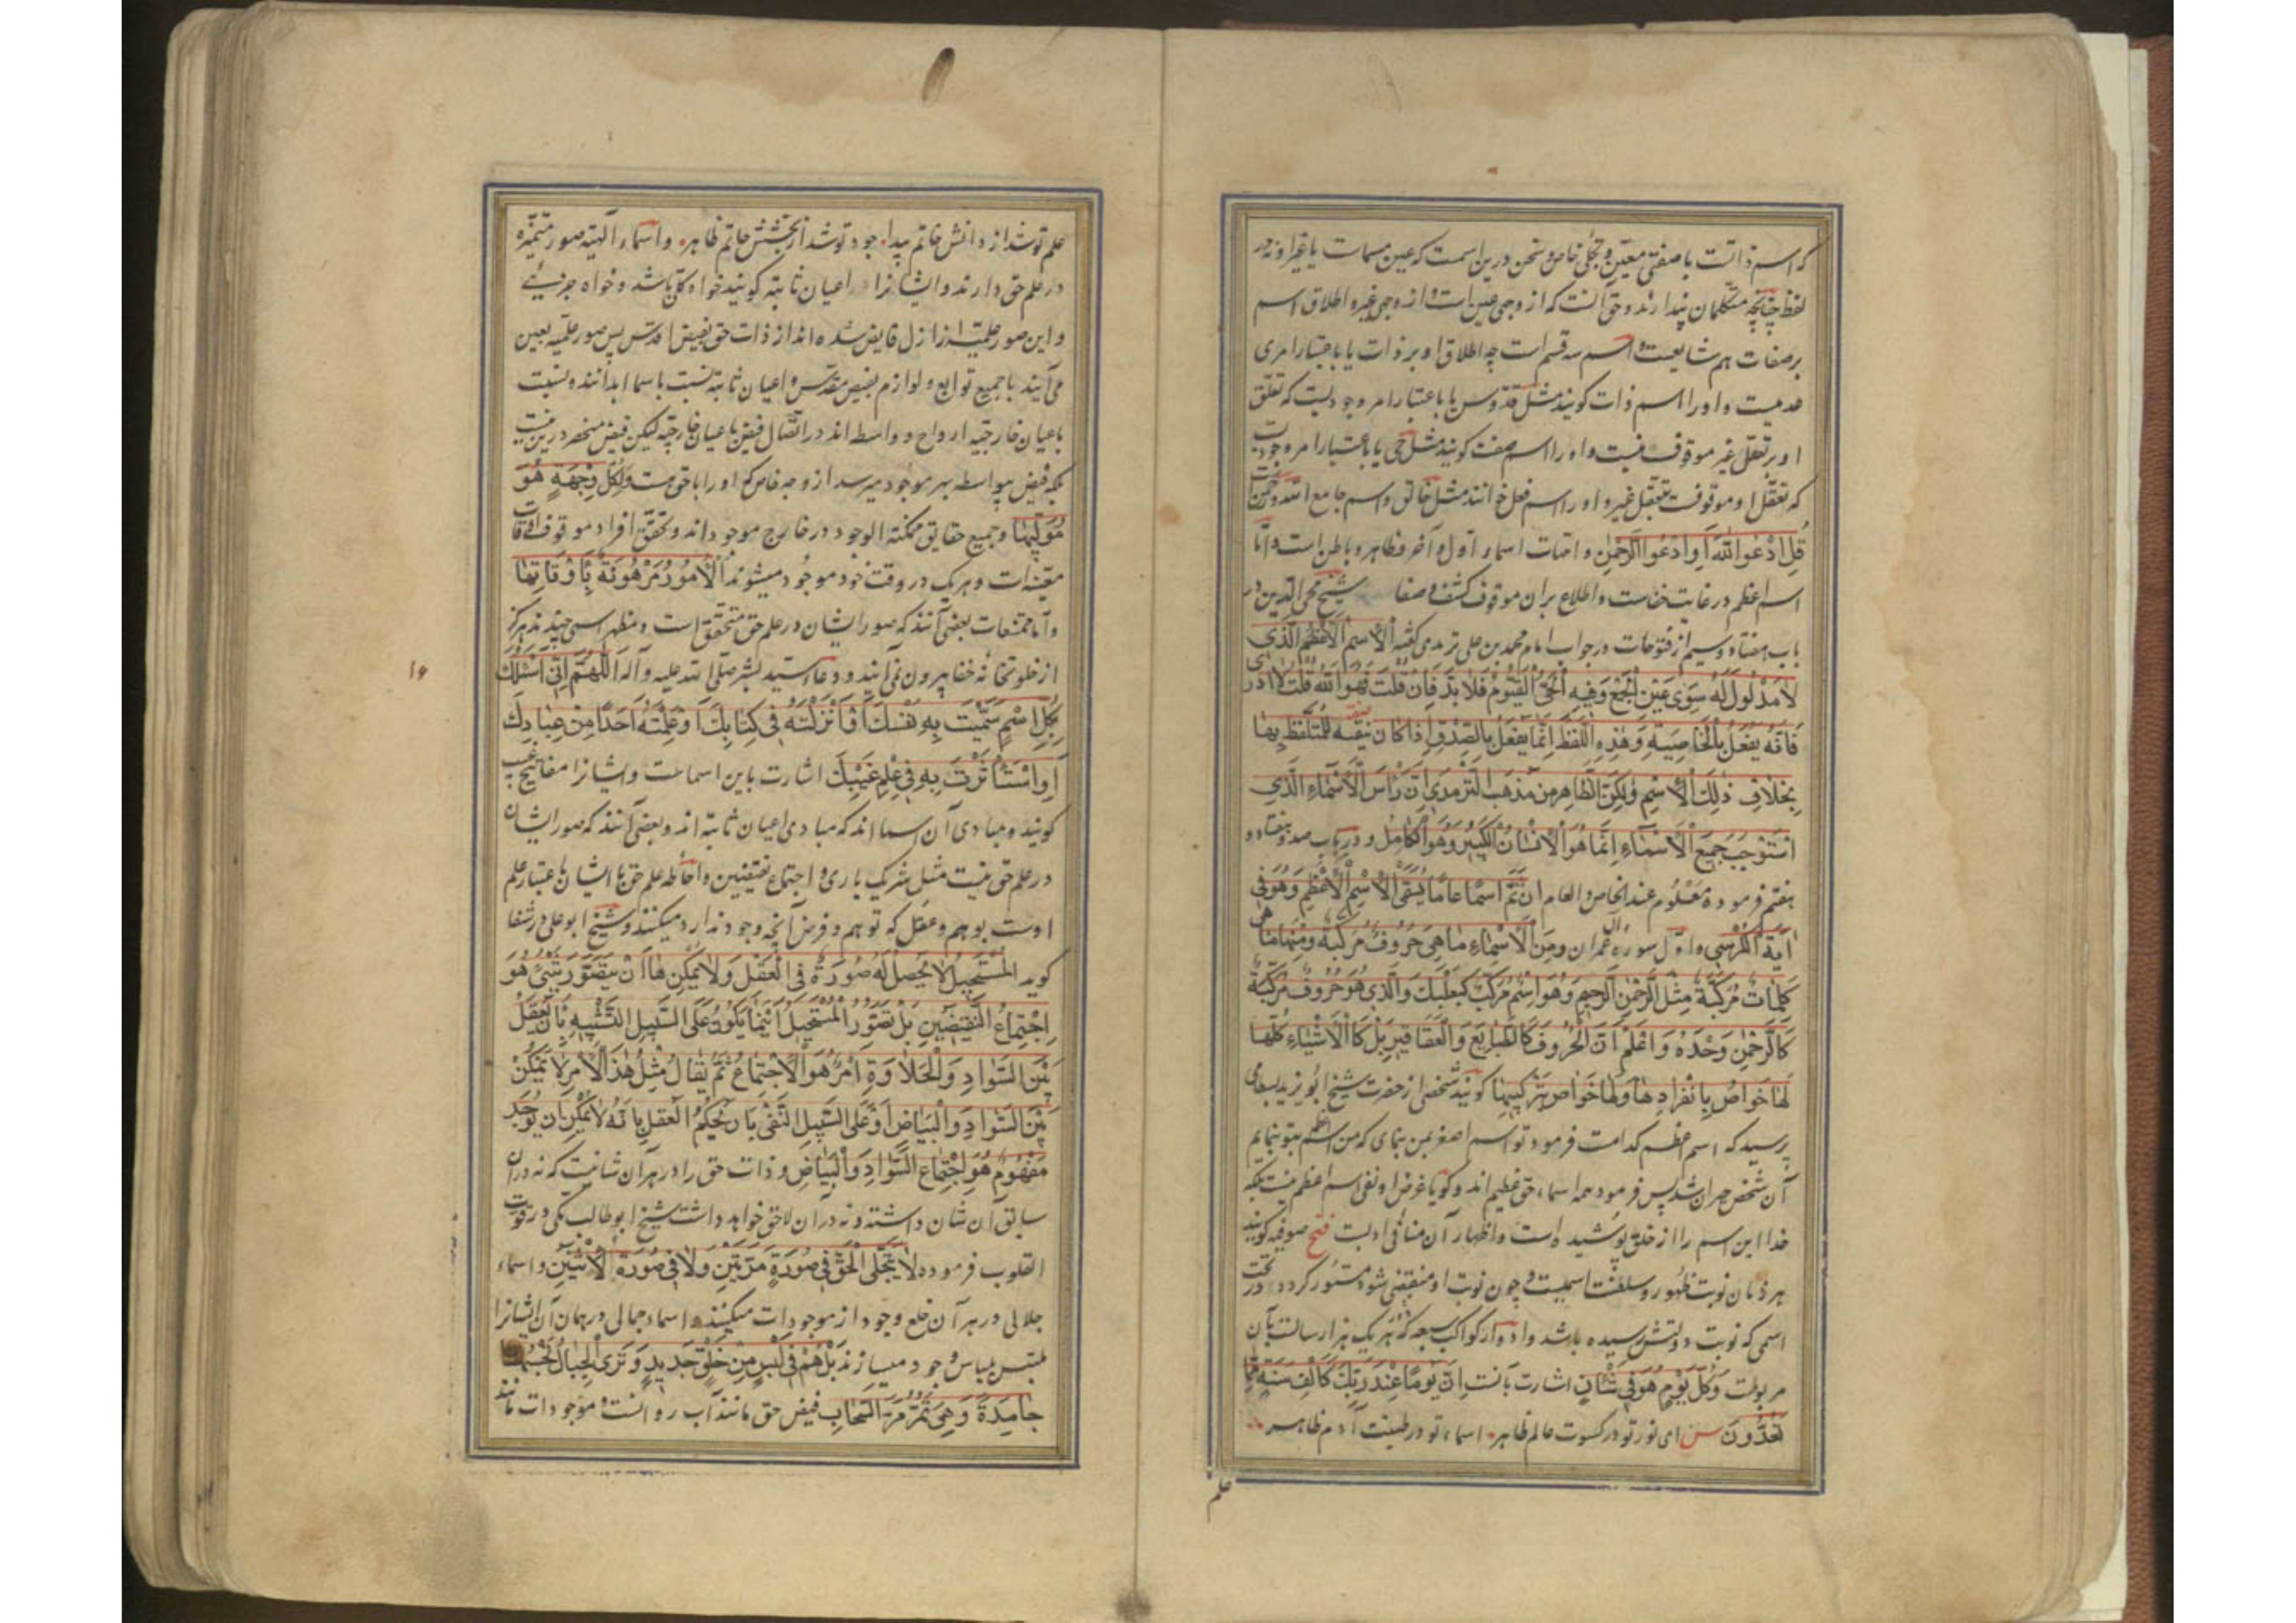 که اسم ذاتست با صفتی معین و تجلی خاص و سخن درین اسمست که عین مسماست یا غیر او نه در
لفظ چنانچه متکلمان پندارند و حق آنست که از وجهی عین است و از وجهی غیر و اطلاق اسم
بر صفات هم شایعست و اسم سه قسم است چه اطلاق او بر ذات یا باعتبار امری
عدمیست و او را اسم ذات کویند مثل قدوس یا باعتبار امر وجودیست که تعقل
او بر تعقل غیر موقوف نیست و او را اسم صفت کویند مثل حی یا باعتبار امر وجودیست
که تعقل او موقوفست بتعقل غیر و او را اسم فعل خوانند مثل خالق و اسم جامع الله و رحمن است
قُلِ ادْعُوا اللّٰهَ اَوِ ادْعُوا الرَّحْمٰنَ و امهات اسماء اول و آخر و ظاهر و باطن است و اما
اسم اعظم در غایت خفاست و اطلاع بران موقوف کشف و صفا شیخ محی الدین در
باب هفتاد و سیم از فتوحات در جواب امام محمد بن علی ترمدی کفته اَلْاِسْمُ الْاَعْظَمُ الَّذِی
لَا مَدْلُولَ لَهُ سِوٰی عَیْنِ الْجَمْعِ وَفِیهِ الْحَیُّ الْقَیُّومُ فَلَا بُدَّ فَاِنْ قُلْتَ فَهُوَ اللّٰهُ قُلْتُ لَا اَدْرِی
فَاِنَّهُ یَفْعَلُ بِالْخَاصِیَّةِ وَهٰذِهِ اللَّفْظَةُ اِنَّمَا یَفْعَلُ بِالصِّدْقِ اِذَا کَانَ صِفَةً لِلْمُتَلَفِّظِ بِهَا
بِخِلَافِ ذٰلِکَ الْاِسْمِ وَلٰکِنَّ الظَّاهِرَ مِنْ مَذْهَبِ التِّرْمِدِی اَنَّ رَأْسَ الْاَسْمَاءِ الَّذِی
اسْتَوْجَبَ جَمِیعَ الْاَسْمَاءِ اِنَّمَا هُوَ الْاِنْسَانُ الْکَبِیرُ وَهُوَ الْکَامِلُ و در باب صد و هفتاد و
هفتم فرموده مَعْلُوم عند الخاص و العام اَنَّ ثَمَّ اسْمًا عَامًّا یُسَمَّی الْاِسْمِ الْاَعْظَمِ وَهُوَ فِی
اٰیَةِ الْکُرْسِی و اول سورة ال عمران وَمِنَ الْاَسْمَاءِ مَا هِیَ حُرُوفٌ مُرَکَّبَةٌ وَمِنْهَا مَا هِیَ
کَلِمَاتٌ مُرَکَّبَةٌ مِثْلُ الرَّحْمٰنِ الرَّحِیمِ وَهُوَ اسْمٌ مُرَکَّبٌ کَبَعْلَبَکَ وَالَّذِی هُوَ حُرُوفٌ مُرَکَّبَةٌ
کَالرَّحْمٰنِ وَحْدَهُ وَاعْلَمْ اَنَّ الْحُرُوفَ کَالطَّبَایِعِ وَالْعَقَاقِیرِ بَلْ کَالْاَشْیَاءِ کُلِّهَا
لَهَا خَوَاصٌ بِانْفِرَادِهَا وَلَهَا خَوَاص بِتَرْکِیبِهَا کویند شخصی از حضرت شیخ ابو یزید بسطامی
پرسید که اسم اعظم کدامست فرمود تو اسم اصغر بمن نمای که من اسم اعظم بتو نمایم
آن شخص حیران شد پس فرمود همه اسماء حق عظیم اند و کویا غرض او نفی اسم اعظم نیست بلکه
خدا این اسم را از خلق پوشیده است و اظهار آن منافی ادبست فتح صوفیه کویند
هر زمان نوبت ظهور و سلطنت اسمیست و چون نوبت او منقضی شود مستور کردد در تحت
اسمی که نوبت دولتش رسیده باشد و ادوار کواکب سبعه که هر یک هزار سالست بآن
مربوطست و کُلَّ یَوْمٍ هُوَ فِی شَأْنٍ اشارت بآنست اِنَّ یَوْمًا عِنْدَ رَبِّکَ کَاَلْفِ سَنَةٍ مِمَّا
تَعُدُّونَ س ای نور تو در کسوت عالم ظاهر اسماء تو در طینت آدم ظاهر
علم
علم تو شد از دانش خاتم پیدا جود تو شد از بخشش حاتم ظاهر و اسماء الهیه صور متمیزه
در علم حق دارند و ایشانرا اعیان ثابته کویند خواه کلی باشد و خواه جزئی
و این صور علمیه از ازل فایض شده اند از ذات حق بفیض اقدس پس صور علمیه بعین
می آیند با جمیع توابع و لوازم بفیض مقدس و اعیان ثابته نسبت با اسما ابدانند و نسبت
باعیان خارجیه ارواح و واسطه اند در اتصال فیض باعیان خارجیه لیکن فیض منحصر درین نیست
بلکه فیض بیواسطه بهر موجود میرسد از وجه خاص که او را با حق هست وَلِکُلٍّ وِجْهَةٌ هُوَ
مُوَلِّیهَا و جمیع حقایق ممکنة الوجود در خارج موجود اند و تحقق افراد موقوف اوقات
معینه است و هر یک در وقت خود موجود میشوند اَلْاُمُورُ مَرْهُونَةٌ بِاَوْقَاتِهَا
و اما ممتنعات بعضی آنند که صور ایشان در علم حق متحقق است و مظهر اسمی چندند که هرکز
از خلوتخانه خفا بیرون نمی آیند و دعاء سید بشر صلی الله علیه و آله اَللّٰهُمَّ اِنِّی اَسْئَلُکَ
بِکُلِّ اسْمٍ سَمَّیْتَ بِهِ نَفْسَکَ اَوْ اَنْزَلْتَهُ فِی کِتَابِکَ اَوْ عَلَّمْتَهُ اَحَدًا مِنْ عِبَادِکَ
اَوِ اسْتَأْثَرْتَ بِهِ فِی عِلْمِ غَیْبِکَ اشارت باین اسماست و ایشانرا مفاتیح غیب
کویند و مبادی آن اسما اند که مبادی اعیان ثابته اند و بعضی آنند که صور ایشان
در علم حق نیست مثل شریک باری و اجتماع نقیضین و احاطه علم حق با ایشان باعتبار علم
اوست بوهم و عقل که توهم و فرض آنچه وجود ندارد میکنند و شیخ ابو علی در شفا
کوید المُسْتَحِیلُ لَا یَحْصُلُ لَهُ صُورَةٌ فِی الْعَقْلِ وَلَا یُمْکِنُ هَا اَنْ یَتَصَوَّرَ شَیْئٌ هُوَ
اِجْتِمَاعُ النَّقِیضَیْنِ بَلْ تَصَوُّرُ الْمُسْتَحِیلِ اِنَّمَا یَکُونُ عَلَی السَّبِیلِ التَّشْبِیهِ بِاَنْ یُعْقَلَ
بَیْنَ السَّوَادِ وَالْحَلَاوَةِ اَمْرٌ هُوَ الْاِجْتِمَاعُ ثُمَّ یُقَالُ مِثْلُ هٰذَا الْاَمْرِ لَا یُمْکِنُ
بَیْنَ السَّوَادِ وَالْبَیَاضِ اَوْ عَلَی السَّبِیلِ النَّفْیِ بِاَنْ یُحْکَمُ الْعَقْلِ بِاَنَّهُ لَا یُمْکِنُ اَنْ یُوجَدَ
مَفْهُومٌ هُوَ اِجْتِمَاعُ السَّوَادِ وَالْبَیَاضِ و ذات حق را در هر آن شانیست که نه در آن
سابق آن شان داشته و نه در آن لاحق خواهد داشت شیخ ابو طالب مکی در قوت
القلوب فرموده لَا یَتَجَلَّی الْحَقُّ فِی صُورَةٍ مَرَّتَیْنِ وَلَا فِی صُورَةِ لِاثْنَیْنِ و اسماء
جلالی در هر آن خلع وجود از موجودات میکنند و اسماء جمالی در همان آن ایشانرا
ملتبس بلباس وجود میسازند بَلْ هُمْ فِی لَبْسٍ مِنْ خَلْقٍ جَدِیدٍ وَ تَرَی الْجِبَالَ تَحْسَبُهَا
جَامِدَةً وَهِیَ تَمُرُّ مَرَّ السَّحَابِ فیض حق مانند آب روانست و موجودات مانند
۱۶